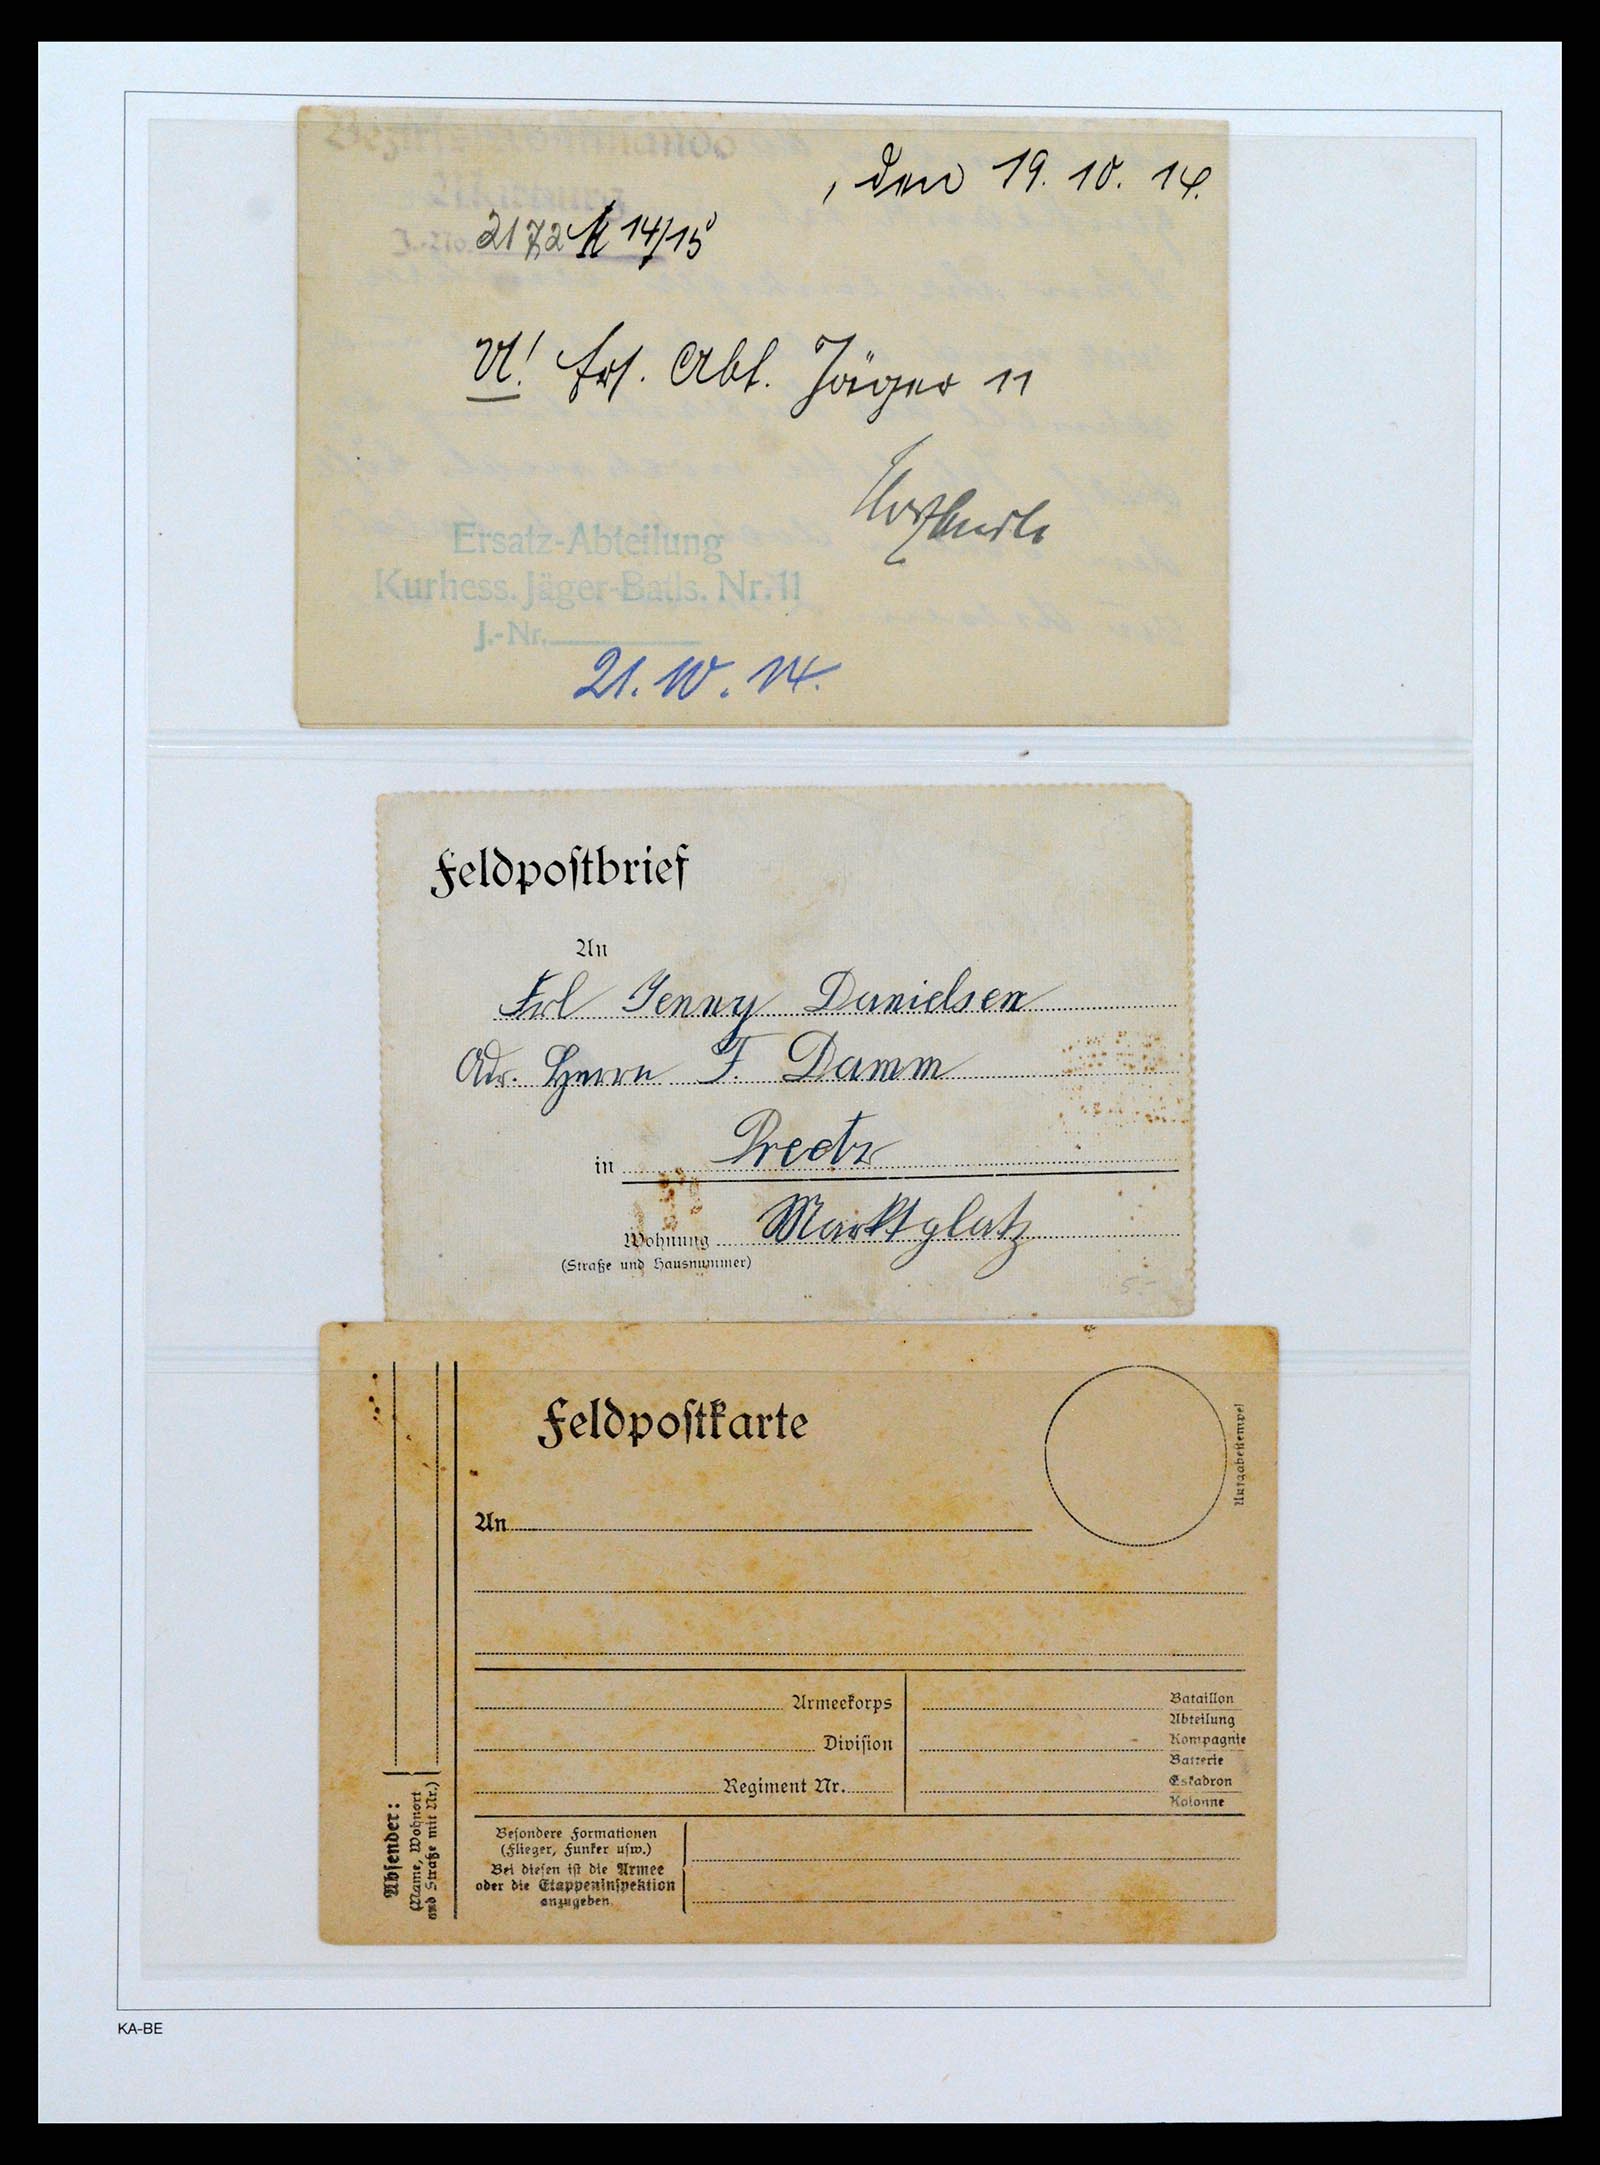 Bezirks-Kommando
Marburg
, den 19. 10. 14.
J.-No. 2172 14/15
U! Ers. Abt. Jäger 11
Ersatz-Abteilung
Kurhess. Jäger-Batls. Nr. 11
J.-Nr.
21. 10. 14.
Feldpostbrief
An
Frl Jenny Danielsen
Adr. Herrn F. Damm
in Preetz
Wohnung Marktplatz
(Straße und Hausnummer)
5.-
Feldpostkarte
Ausgabestempel
An
Armeekorps
Division
Regiment Nr.
Bataillon
Abteilung
Kompagnie
Batterie
Eskadron
Kolonne
Besondere Formationen
(Flieger, Funker usw.)
Bei diesen ist die Armee
oder die Etappeninspektion
anzugeben
Absender:
(Name, Wohnort
und Straße mit Nr.)
KA-BE